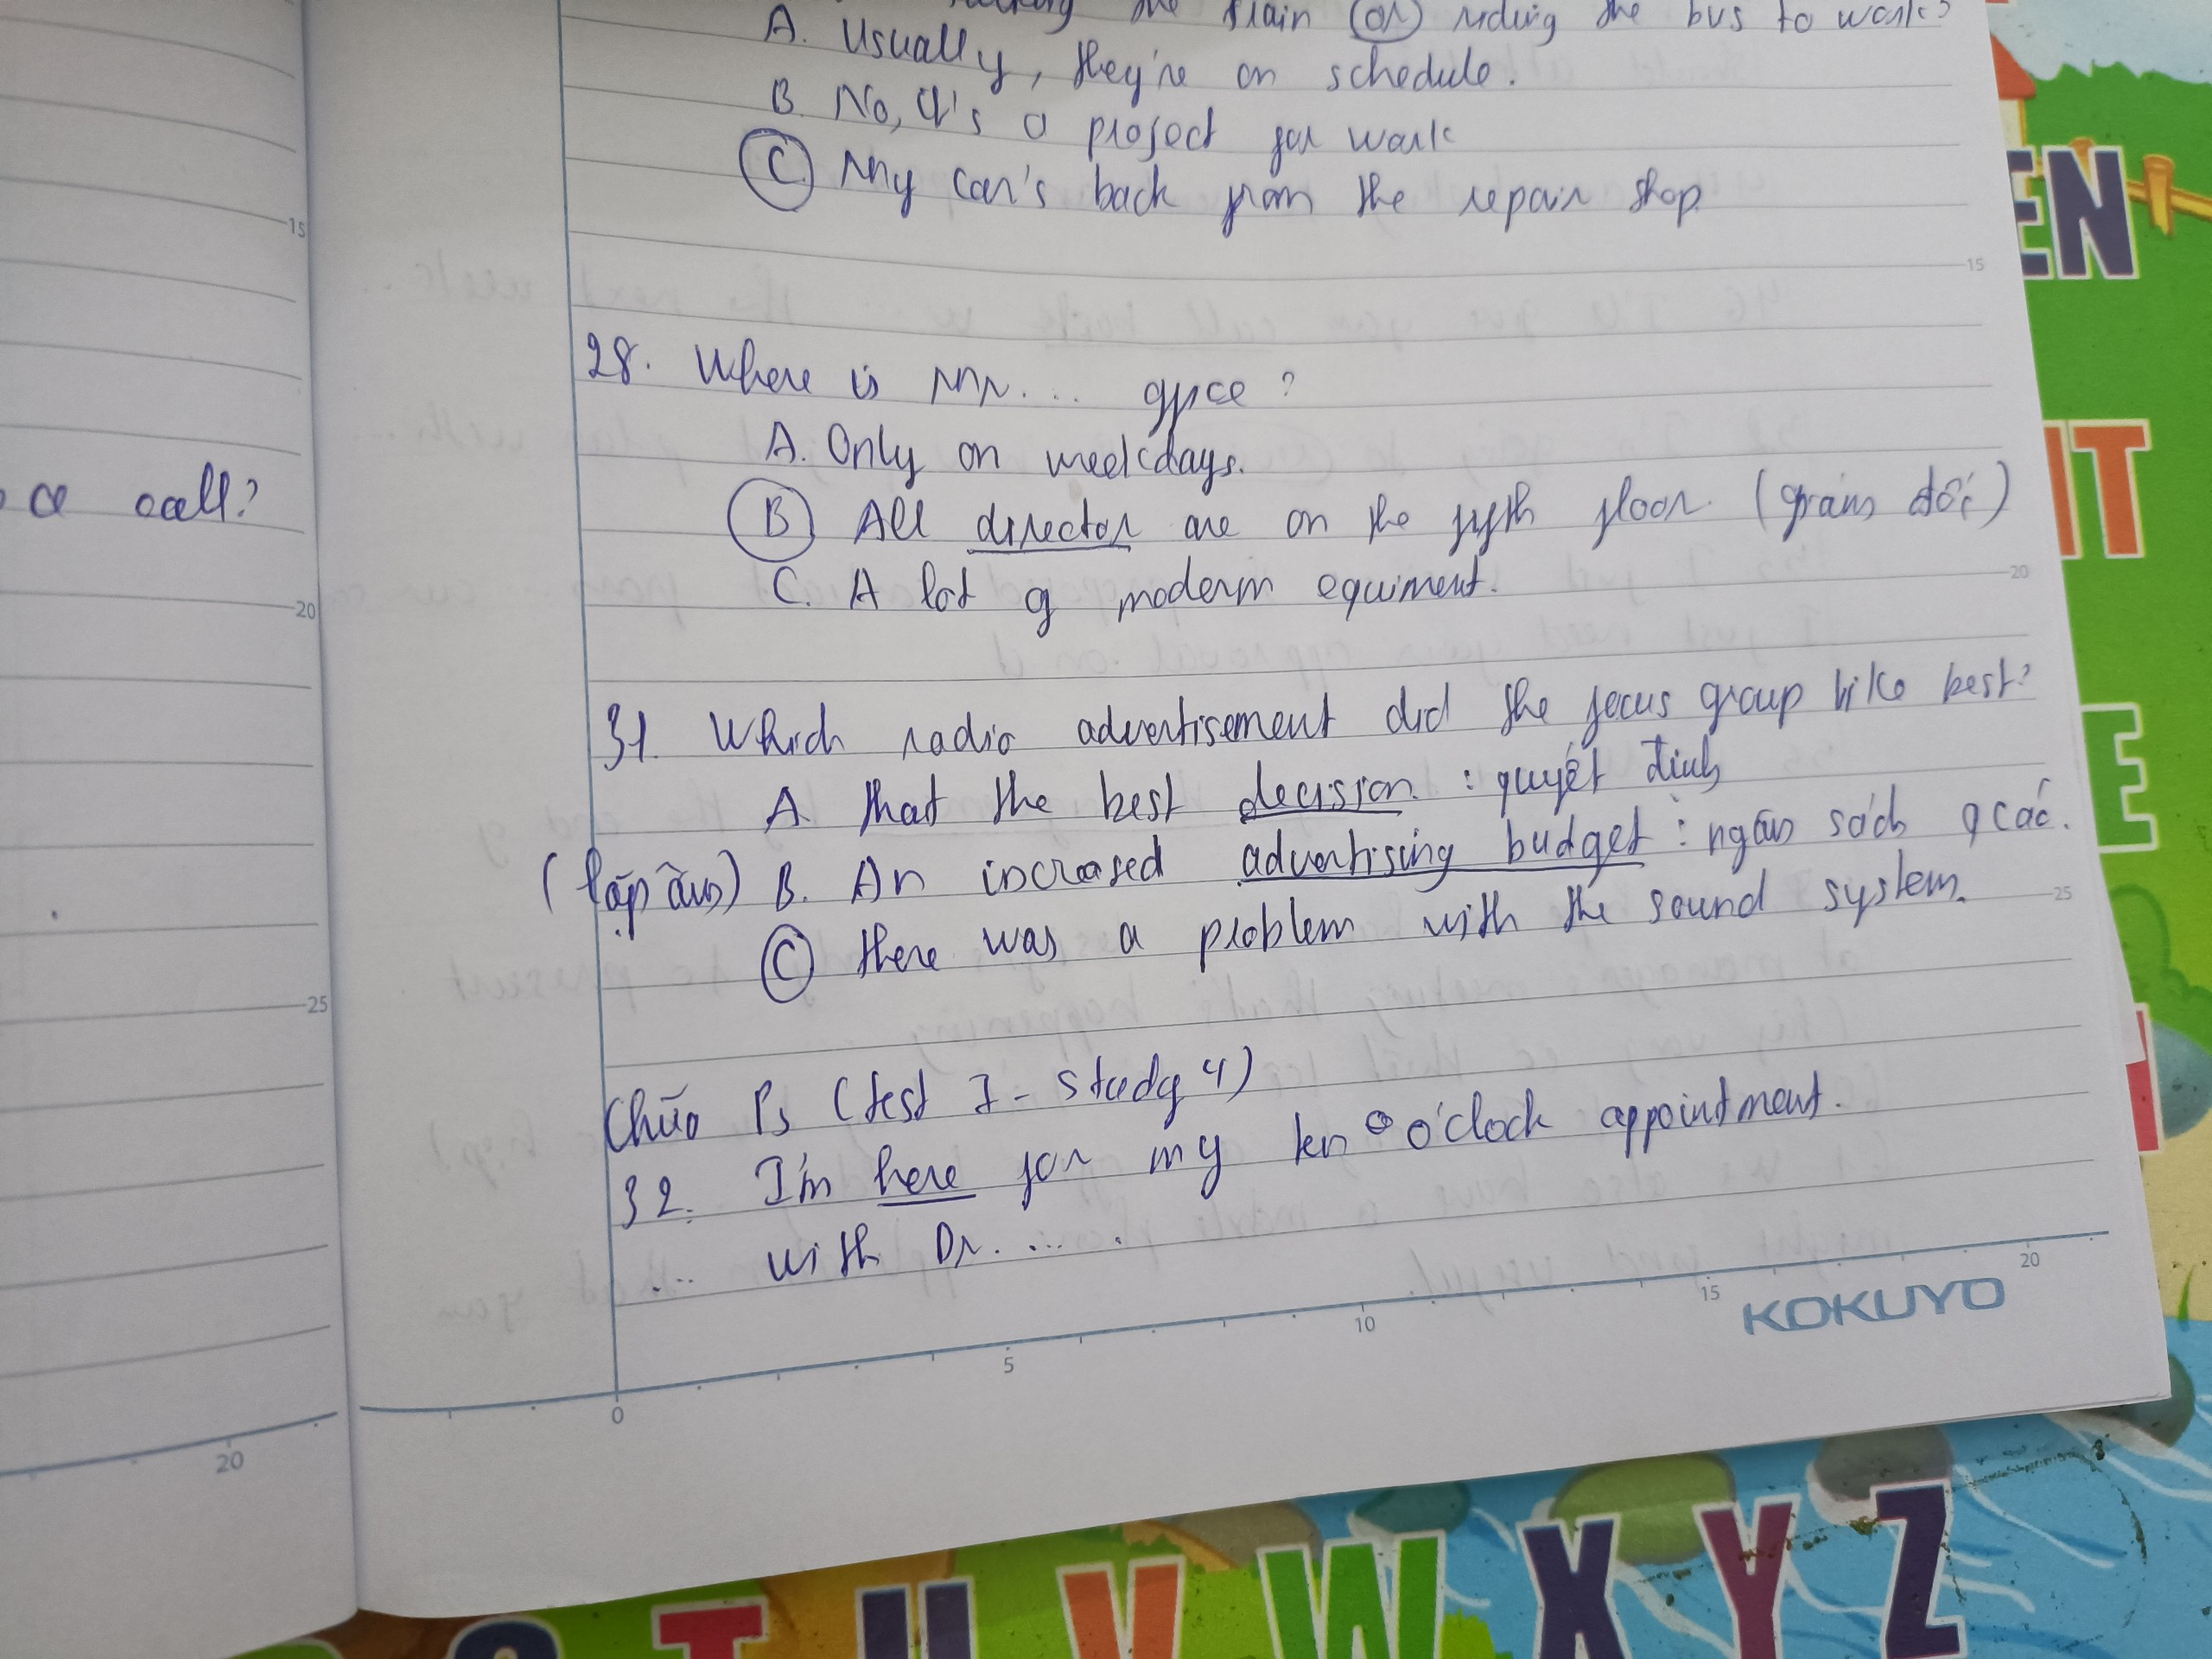 the train (or) riding the bus to work?
A. Usually, they're on schedule.
B. No, it's a project for work
C. My car's back from the repair shop.
15
15
28. Where is Mr.... office?
a call?
A. Only on weekdays.
B All director are on the fifth floor. (giám đốc)
C. A lot of moderm equiment.
20
20
31. Which radio advertisement did the focus group like best?
A. that the best decision. : quyết định
(lặp âm) B. An increased advertising budget : ngân sách qcáo.
C there was a problem with the sound system.
25
25
Chữa P3 (test 1 - study 4)
32. I'm here for my ten o'clock appointment.
... with Dr. ....
0 5 10 15 20
KOKUYO
20
EN
IT
E
T U V W X Y Z